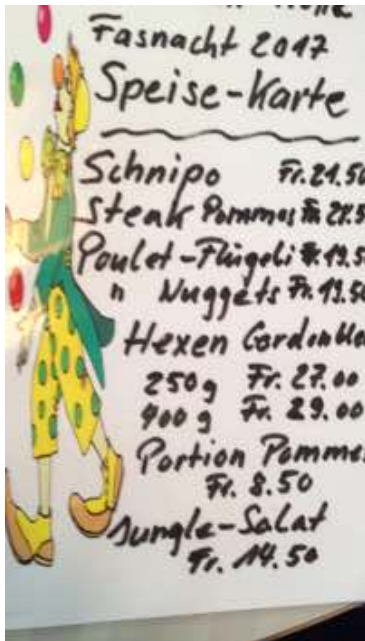 Fasnacht 2017
Speise-Karte
Schnipo Fr. 21.50
Steak Pommes Fr.
Poulet-Flügeli Fr. 19.5
" Nuggets Fr. 19.50
Hexen Cordonble
250g Fr. 27.00
400 g Fr. 29.00
Portion Pomme
Fr. 8.50
Jungle-Salat
Fr. 14.50